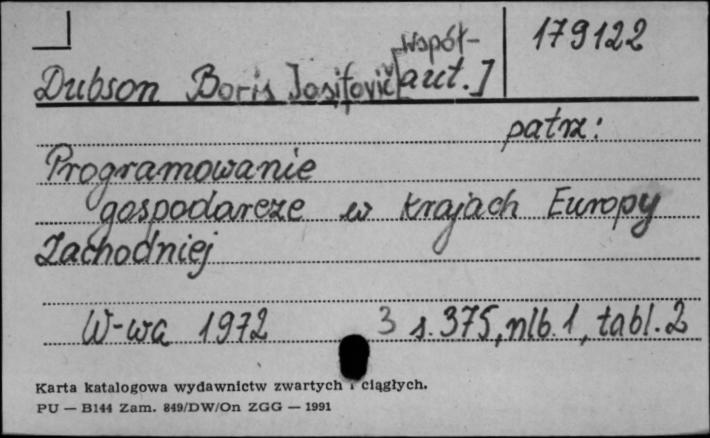 179122
Dubson Boris Josifovič [współ-
aut.]
patrz:
Programowanie
gospodarcze w krajach Europy
Zachodniej
W-wa 1972 3 s. 375, nlb. 1, tabl. 2
Karta katalogowa wydawnictw zwartych i ciągłych.
PU — B144 Zam. 849/DW/On ZGG — 1991